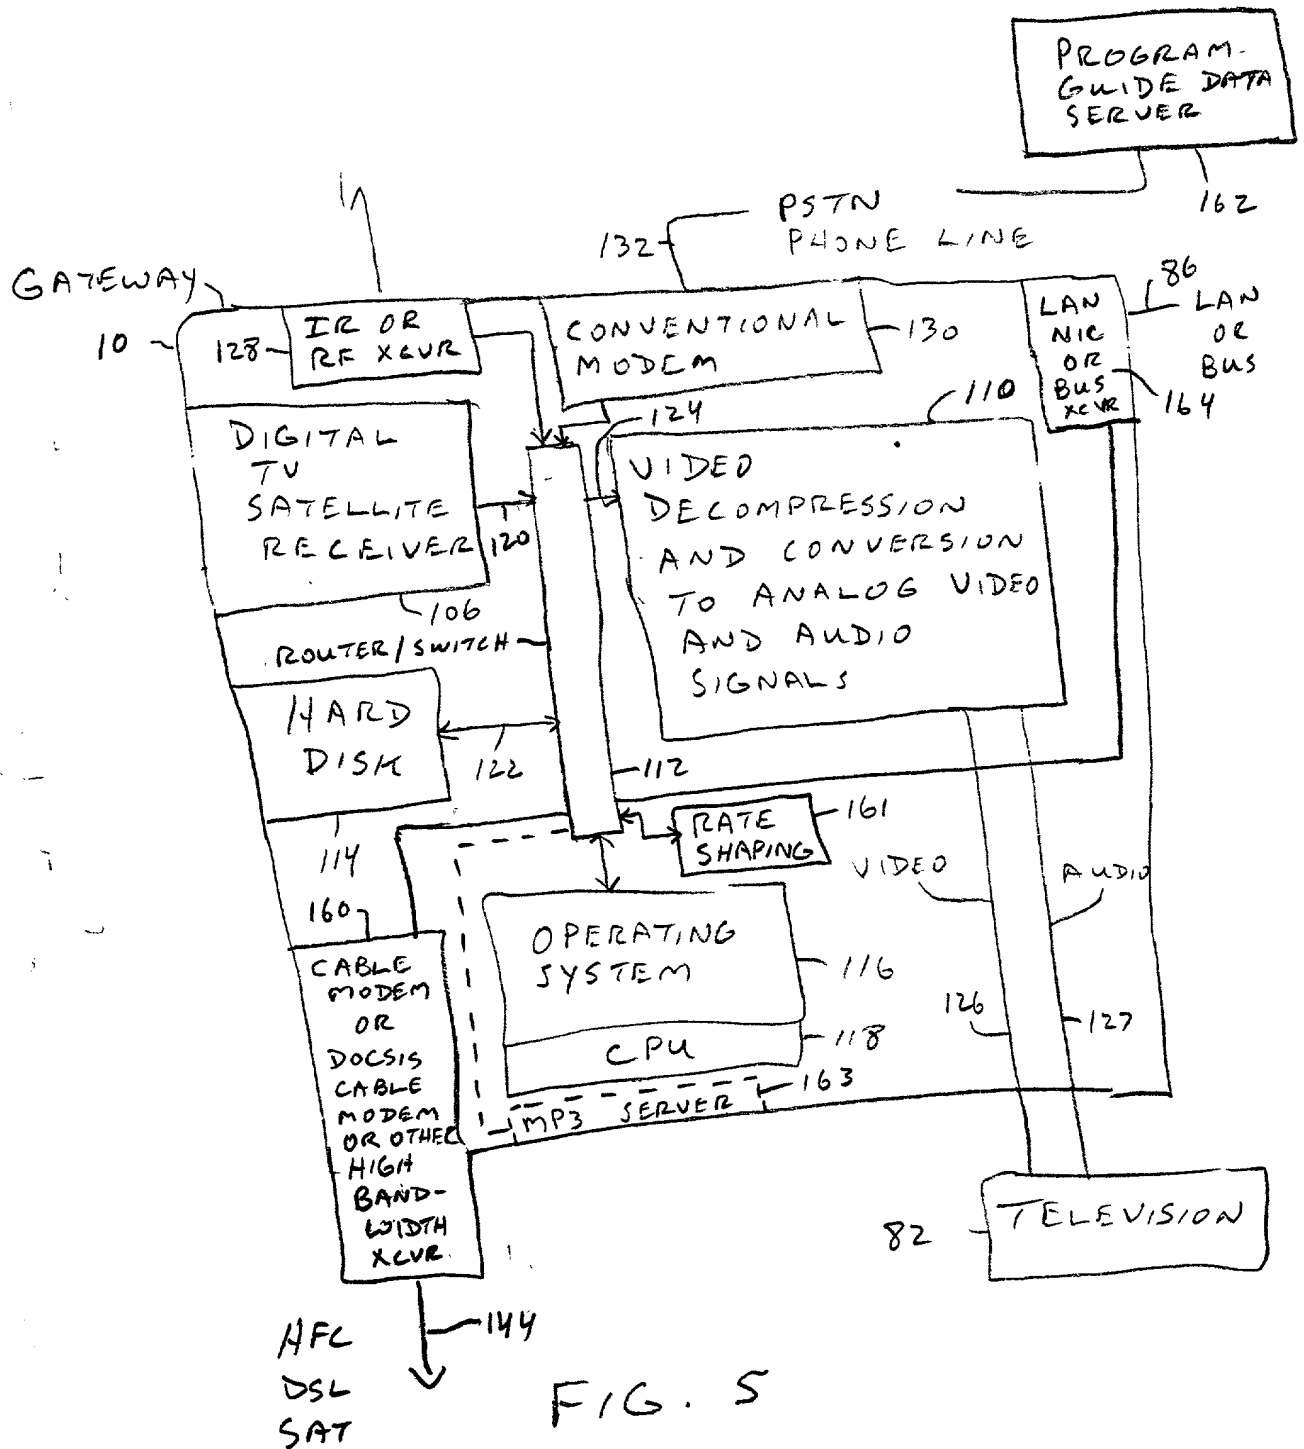 PROGRAM-
GUIDE DATA
SERVER
162
PSTN
PHONE LINE
132
GATEWAY
10
128
IR OR
RF XCVR
CONVENTIONAL
MODEM
130
LAN
NIC
OR
BUS
XCVR
164
86
LAN
OR
BUS
DIGITAL
TV
SATELLITE
RECEIVER
120
106
124
110
VIDEO
DECOMPRESSION
AND CONVERSION
TO ANALOG VIDEO
AND AUDIO
SIGNALS
ROUTER/SWITCH
HARD
DISK
122
114
112
RATE
SHAPING
161
VIDEO
AUDIO
160
CABLE
MODEM
OR
DOCSIS
CABLE
MODEM
OR OTHER
HIGH
BAND-
WIDTH
XCVR
OPERATING
SYSTEM
116
CPU
118
MP3 SERVER
163
126
127
82
TELEVISION
144
HFC
DSL
SAT
FIG. 5